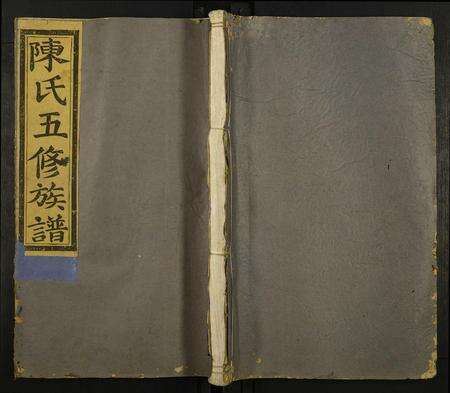 陳氏五修族譜